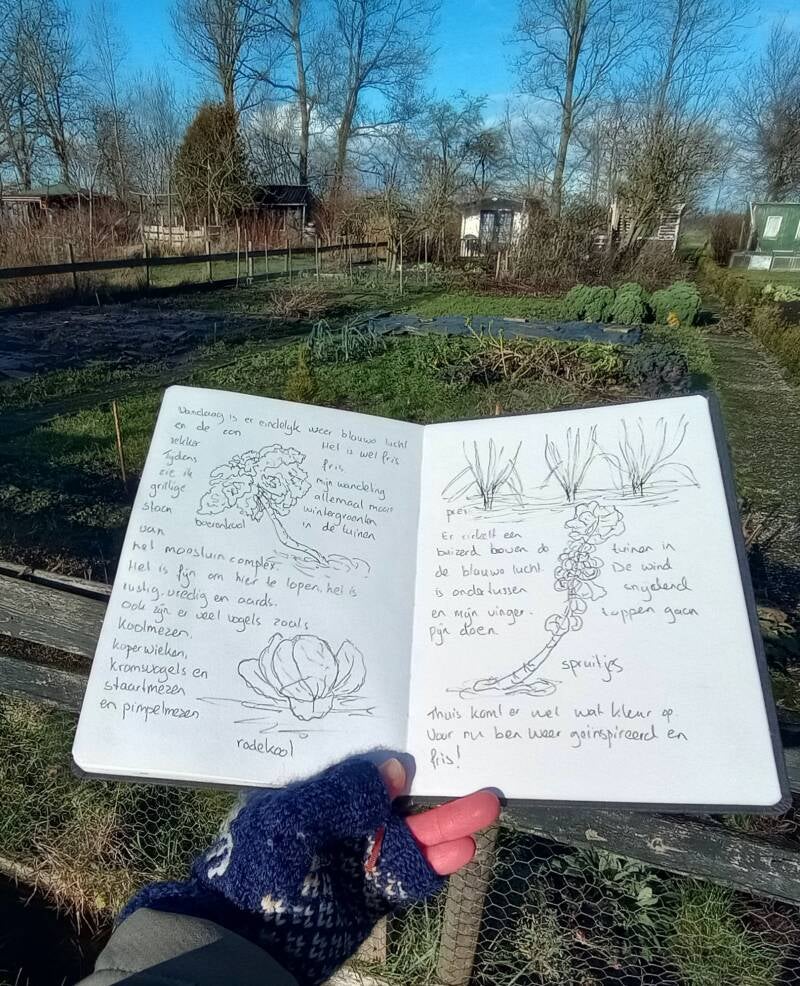 Vandaag is er eindelijk weer blauwe lucht
en de zon
lekker
Het is wel fris
fris.
Tijdens
mijn wandeling
zie ik
allemaal mooie
grillige
wintergroenten
staan
in de tuinen
boerenkool
van
het moestuin complex.
Het is fijn om hier te lopen, het is
rustig, vredig en aards.
Ook zijn er veel vogels zoals
koolmezen,
koperwieken,
kramsvogels en
staartmezen
en pimpelmezen
rodekool
prei
Er cirkelt een
buizerd boven de tuinen in
de blauwe lucht. De wind
is ondertussen snijdend
en mijn vinger- toppen gaan
pijn doen.
spruitjes
Thuis komt er wel wat kleur op.
Voor nu ben weer geïnspireerd en
fris!